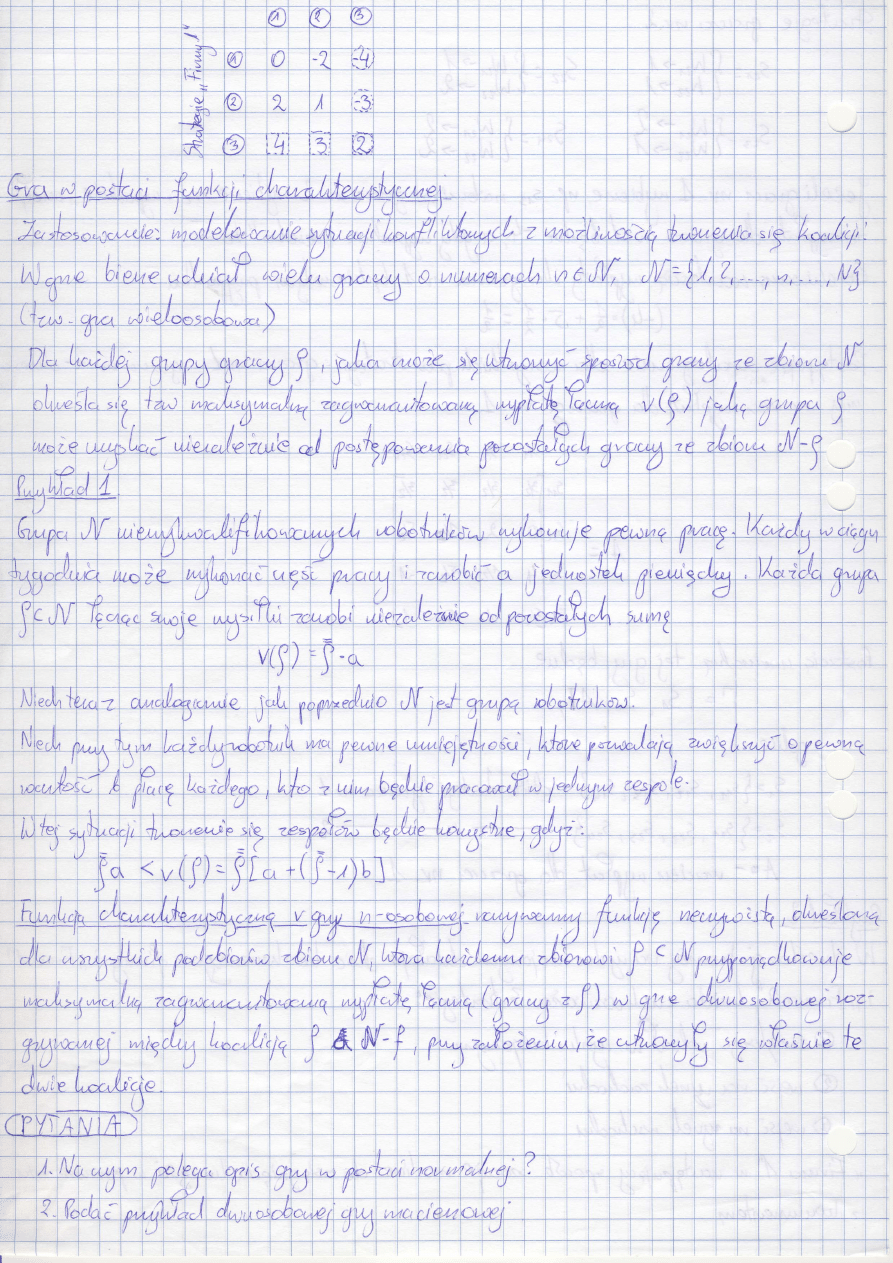 ① ② ③
Strategie „Firmy 1"
① 0 -2 -4
② 2 1 -3
③ 4 3 2
Gra w postaci funkcji charakterystycznej
Zastosowanie: modelowanie sytuacji konfliktowych z możliwością tworzenia się koalicji.
W grze bierze udział wielu graczy o numerach n ∈ N, N = {1, 2, ..., n, ..., N}
(tzw. gra wieloosobowa)
Dla każdej grupy graczy ρ, jaka może się utworzyć spośród graczy ze zbioru N
określa się tzw maksymalną zagwarantowaną wypłatę łączną v(ρ) jaką grupa ρ
może uzyskać niezależnie od postępowania pozostałych graczy ze zbioru N-ρ
Przykład 1
Grupa N niewykwalifikowanych robotników wykonuje pewną pracę. Każdy w ciągu
tygodnia może wykonać część pracy i zarobić a jednostek pieniędzy. Każda grupa
ρ ⊂ N łącząc swoje wysiłki zarobi niezależnie od pozostałych sumę
v(ρ) = ρ̿·a
Niech teraz analogicznie jak poprzednio N jest grupą robotników.
Niech przy tym każdy robotnik ma pewne umiejętności, które pozwalają zwiększyć o pewną
wartość b płacę każdego, kto z nim będzie pracował w jednym zespole.
W tej sytuacji tworzenie się zespołów będzie korzystne, gdyż:
ρ̿a < v(ρ) = ρ̿[a + (ρ̿-1)b]
Funkcją charakterystyczną v gry n-osobowej nazywamy funkcję rzeczywistą, określoną
dla wszystkich podzbiorów zbioru N, która każdemu zbiorowi ρ ⊂ N przyporządkowuje
maksymalną zagwarantowaną wypłatę łączną (graczy z ρ) w grze dwuosobowej roz-
grywanej między koalicją ρ a N-ρ, przy założeniu, że utworzyły się właśnie te
dwie koalicje.
PYTANIA
1. Na czym polega opis gry w postaci normalnej?
2. Podać przykład dwuosobowej gry macierzowej